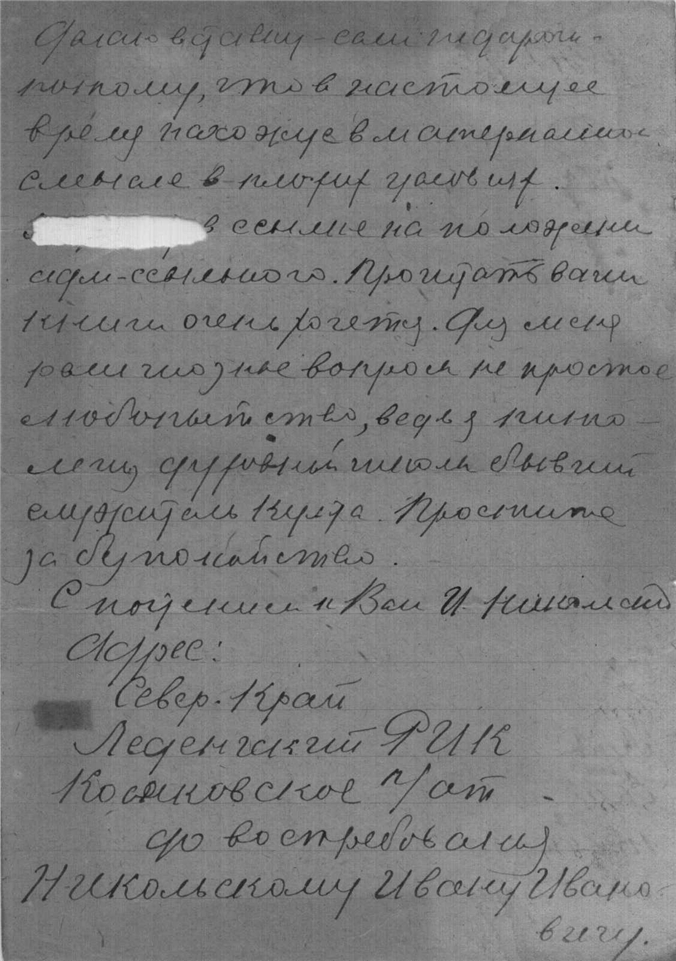 Делаю вставку - если недорого -
потому, что в настоящее
время нахожусь в материальном
смысле в плохих условиях.
в ссылке на положении
адм-ссыльного. Прочитать ваши
книги очень хочется. Для меня
религиозные вопросы не простое
любопытство, ведь я пито-
мец духовной школы бывший
служитель культа. Простите
за беспокойство.
С почтением к Вам И. Никольский
Адрес:
Север. Край
Леденгский РИК
Косиковское п/от
до востребования
Никольскому Ивану Ивано-
вичу.